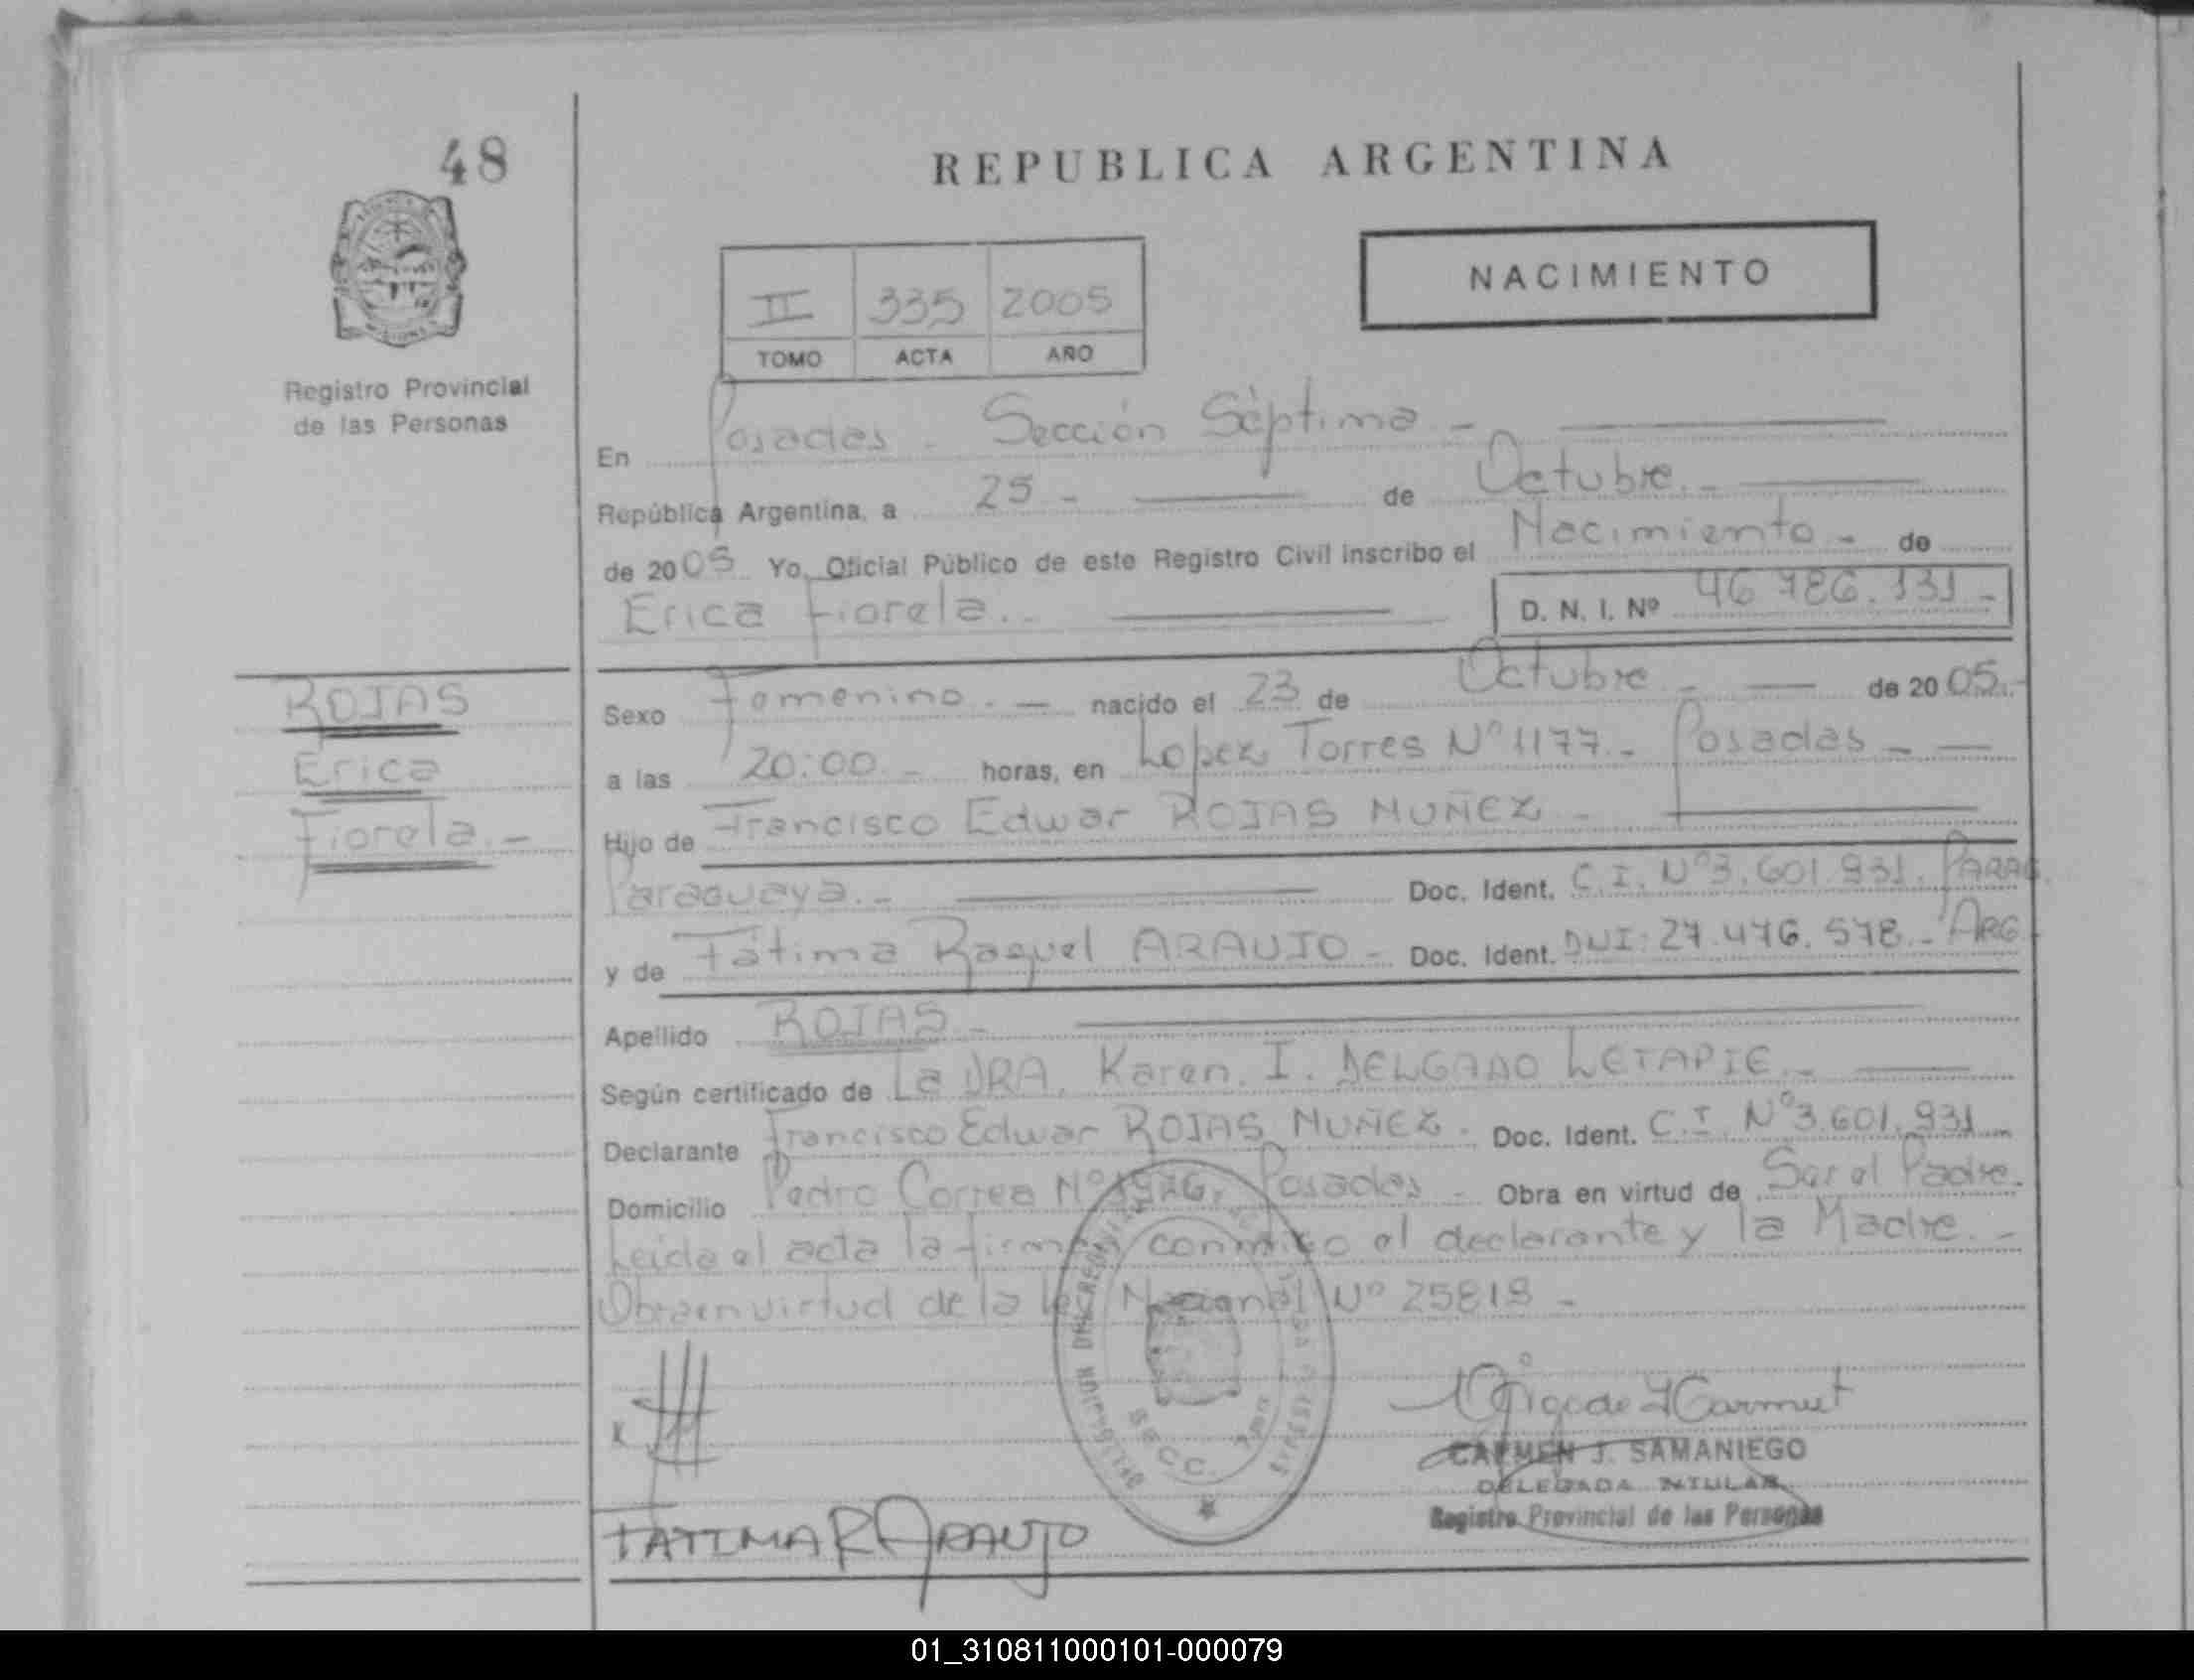 48
REPUBLICA ARGENTINA
NACIMIENTO
II 335 2005
TOMO ACTA AÑO
Registro Provincial
de las Personas
En Posadas - Sección Séptima -
República Argentina, a 25 - de Octubre. -
de 2005 Yo, Oficial Público de este Registro Civil inscribo el Nacimiento - de
Erica Fiorela. - D. N. I. Nº 46 786.131 -
ROJAS
Erica
Fiorela. -
Sexo Femenino. - nacido el 23 de Octubre - de 2005.
a las 20:00 - horas, en Lopez Torres Nº 1177 - Posadas -
Hijo de Francisco Edwar ROJAS NUÑEZ -
Paraguaya. - Doc. Ident. C.I. Nº 3.601.931. PARAG.
y de Fátima Raquel ARAUJO - Doc. Ident. DNI: 27.476.578 - ARG
Apellido ROJAS -
Según certificado de La DRA. Karen. I. DELGADO LETAPIE. -
Declarante Francisco Edwar ROJAS NUÑEZ - Doc. Ident. C.I. Nº 3.601.931
Domicilio Pedro Correa Nº Posadas - Obra en virtud de Ser el Padre.
Leida el acta la firman conmigo el declarante y la Madre. -
Obra en virtud de la ley Nacional Nº 25819 -
SECC. 7ma
FATIMA R ARAUJO
CARMEN J. SAMANIEGO
DELEGADA TITULAR
Registro Provincial de las Personas
01_310811000101-000079